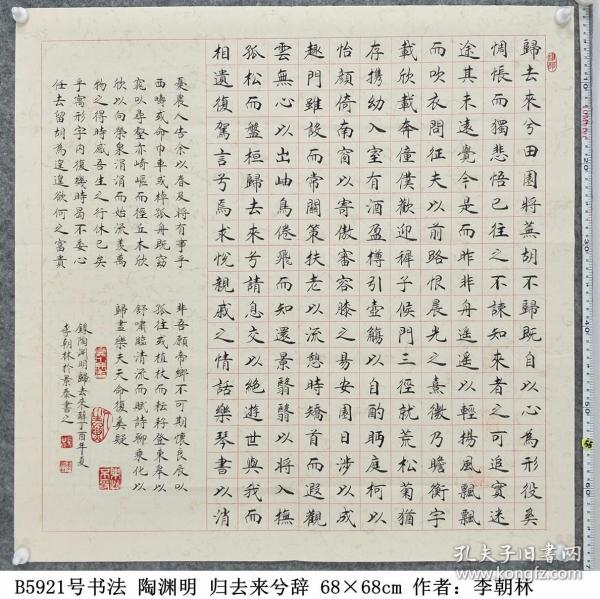 歸去來兮田園將蕪胡不歸既自以心為形役奚
惆悵而獨悲悟已往之不諫知來者之可追實迷
途其未遠覺今是而昨非舟遥遥以輕揚風飄飄
而吹衣問征夫以前路恨晨光之熹微乃瞻衡宇
載欣載奔僮僕歡迎稚子候門三徑就荒松菊猶
存携幼入室有酒盈樽引壺觴以自酌眄庭柯以
怡顏倚南窗以寄傲審容膝之易安園日涉以成
趣門雖設而常關策扶老以流憩時矯首而遐觀
雲無心以出岫鳥倦飛而知還景翳翳以將入撫
孤松而盤桓歸去來兮請息交以絕遊世與我而
相遺復駕言兮焉求悅親戚之情話樂琴書以消
憂農人告余以春及將有事乎
西疇或命巾車或棹孤舟既窈
窕以尋壑亦崎嶇而徑丘木欣
欣以向榮泉涓涓而始流羨萬
物之得時感吾生之行休已矣
乎寓形宇內復幾時曷不委心
任去留胡為遑遑欲何之富貴
非吾願帝鄉不可期懷良辰以
孤往或植杖而耘耔登東皋以
舒嘯臨清流而賦詩聊乘化以
歸盡樂夫天命復奚疑
錄陶淵明歸去來辭丁酉年夏
李朝林於景泰書之
孔夫子旧书网
B5921号书法 陶渊明 归去来兮辞 68×68cm 作者：李朝林